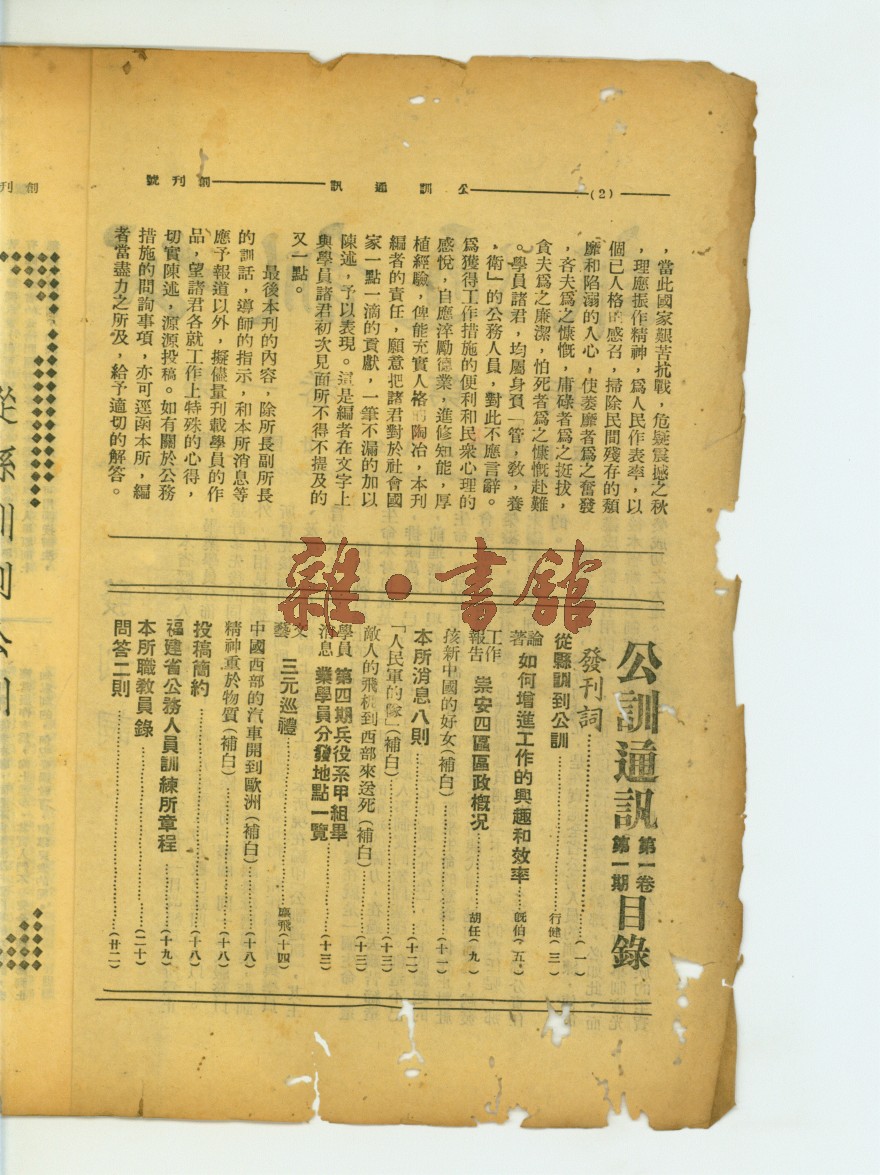 (2) 公訓通訊 創刊號
，當此國家艱苦抗戰，危疑震撼之秋
，理應振作精神，爲人民作表率，以
個已人格的感召，掃除民間殘存的頽
靡和陷溺的人心，使萎靡者爲之奮發
，吝夫爲之慷慨，庸碌者爲之挺拔，
貪夫爲之廉潔，怕死者爲之慷慨赴難
。學員諸君，均屬身負「管，敎，養
，衛」的公務人員，對此不應言辭。
爲獲得工作措施的便利和民衆心理的
感悅，自應淬勵德業，進修知能，厚
植經驗，俾能充實人格的陶冶，本刊
編者的責任，願意把諸君對於社會國
家一點一滴的貢獻，一筆不漏的加以
陳述，予以表現。這是編者在文字上
與學員諸君初次見面所不得不提及的
又一點。
最後本刊的內容，除所長副所長
的訓話，導師的指示，和本所消息等
應予報道以外，擬儘量刊載學員的作
品，望諸君各就工作上特殊的心得，
切實陳述，源源投稿。如有關於公務
措施的問詢事項，亦可逕函本所，編
者當盡力之所及，給予適切的解答。
公訓通訊 第一卷第一期 目錄
發刊詞……(一)
從縣訓到公訓……行健(三)
論著 如何增進工作的興趣和效率……旣伯(五)
工作報告 崇安四區區政槪况……胡任(九)
孩新中國的好女(補白)……(十一)
本所消息八則……(十二)
「人民軍的隊」(補白)……(十三)
敵人的飛機到西部來送死(補白)……(十三)
學員消息 第四期兵役系甲組畢業學員分發地點一覽……(十三)
文藝 三元巡禮……塵飛(十四)
中國西部的汽車開到歐洲(補白)……(十八)
精神重於物質(補白)……(十八)
投稿簡約……(十八)
福建省公務人員訓練所章程……(十九)
本所職敎員錄……(二十)
問答二則……(廿二)
雜·書館
創刊
從縣訓到公訓